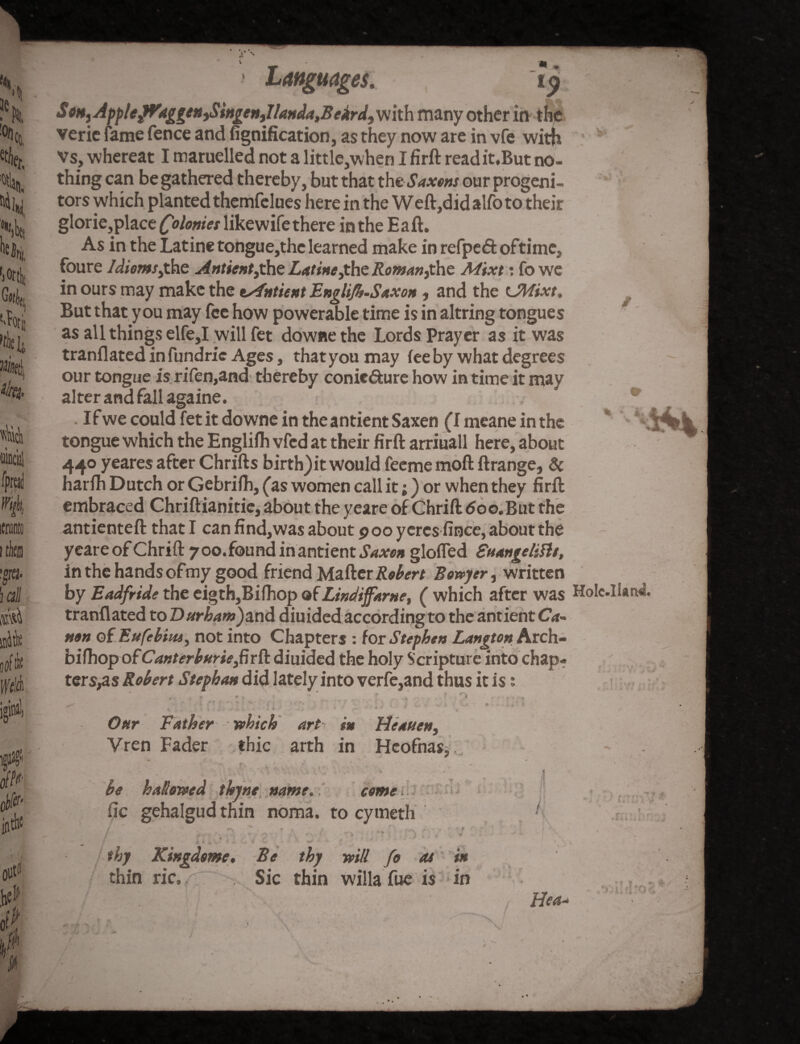 Languages. 19
Son, Apple, Waggen, Singen, Ilanda, Beard, with many other in the
verie ſame ſence and ſignification, as they now are in vſe with
vs, whereat I maruelled not a little, when I firſt read it. But no-
thing can be gathered thereby, but that the Saxons our progeni-
tors which planted themſelues here in the Weſt, did alſo to their
glorie, place Colonies likewiſe there in the Eaſt.
As in the Latine tongue, the learned make in reſpect of time,
foure Idioms, the Antient, the Latine, the Roman, the Mixt : ſo we
in ours may make the Antient Engliſh-Saxon , and the Mixt.
But that you may ſee how powerable time is in altring tongues
as all things elſe, I will ſet downe the Lords Prayer as it was
tranſlated in ſundrie Ages, that you may ſee by what degrees
our tongue is riſen, and thereby coniecture how in time it may
alter and fall againe.
If we could ſet it downe in the antient Saxen (I meane in the
tongue which the Engliſh vſed at their firſt arriuall here, about
440 yeares after Chriſts birth) it would ſeeme moſt ſtrange, &
harſh Dutch or Gebriſh, (as women call it ; ) or when they firſt
embraced Chriſtianitie, about the yeare of Chriſt 600. But the
antienteſt that I can find, was about 900 yeres ſince, about the
yeare of Chriſt 700. found in antient Saxon gloſſed Euangeliſts,
in the hands of my good friend Maſter Robert Bowyer, written
by Eadfride the eigth, Biſhop of Lindiffarne, ( which after was Hole-Iland.
tranſlated to Durham) and diuided according to the antient Ca-
non of Euſebius, not into Chapters : for Stephen Langton Arch-
biſhop of Canterburie, firſt diuided the holy Scripture into chap-
ters, as Robert Stephan did lately into verſe, and thus it is :
Our Father which art in Heauen,
Vren Fader thic arth in Heofnas,
be hallowed thyne name. come
ſic gehalgud thin noma. to cymeth
thy Kingdome. Be thy will ſo as in
thin ric. Sic thin willa ſue is in
Hea-